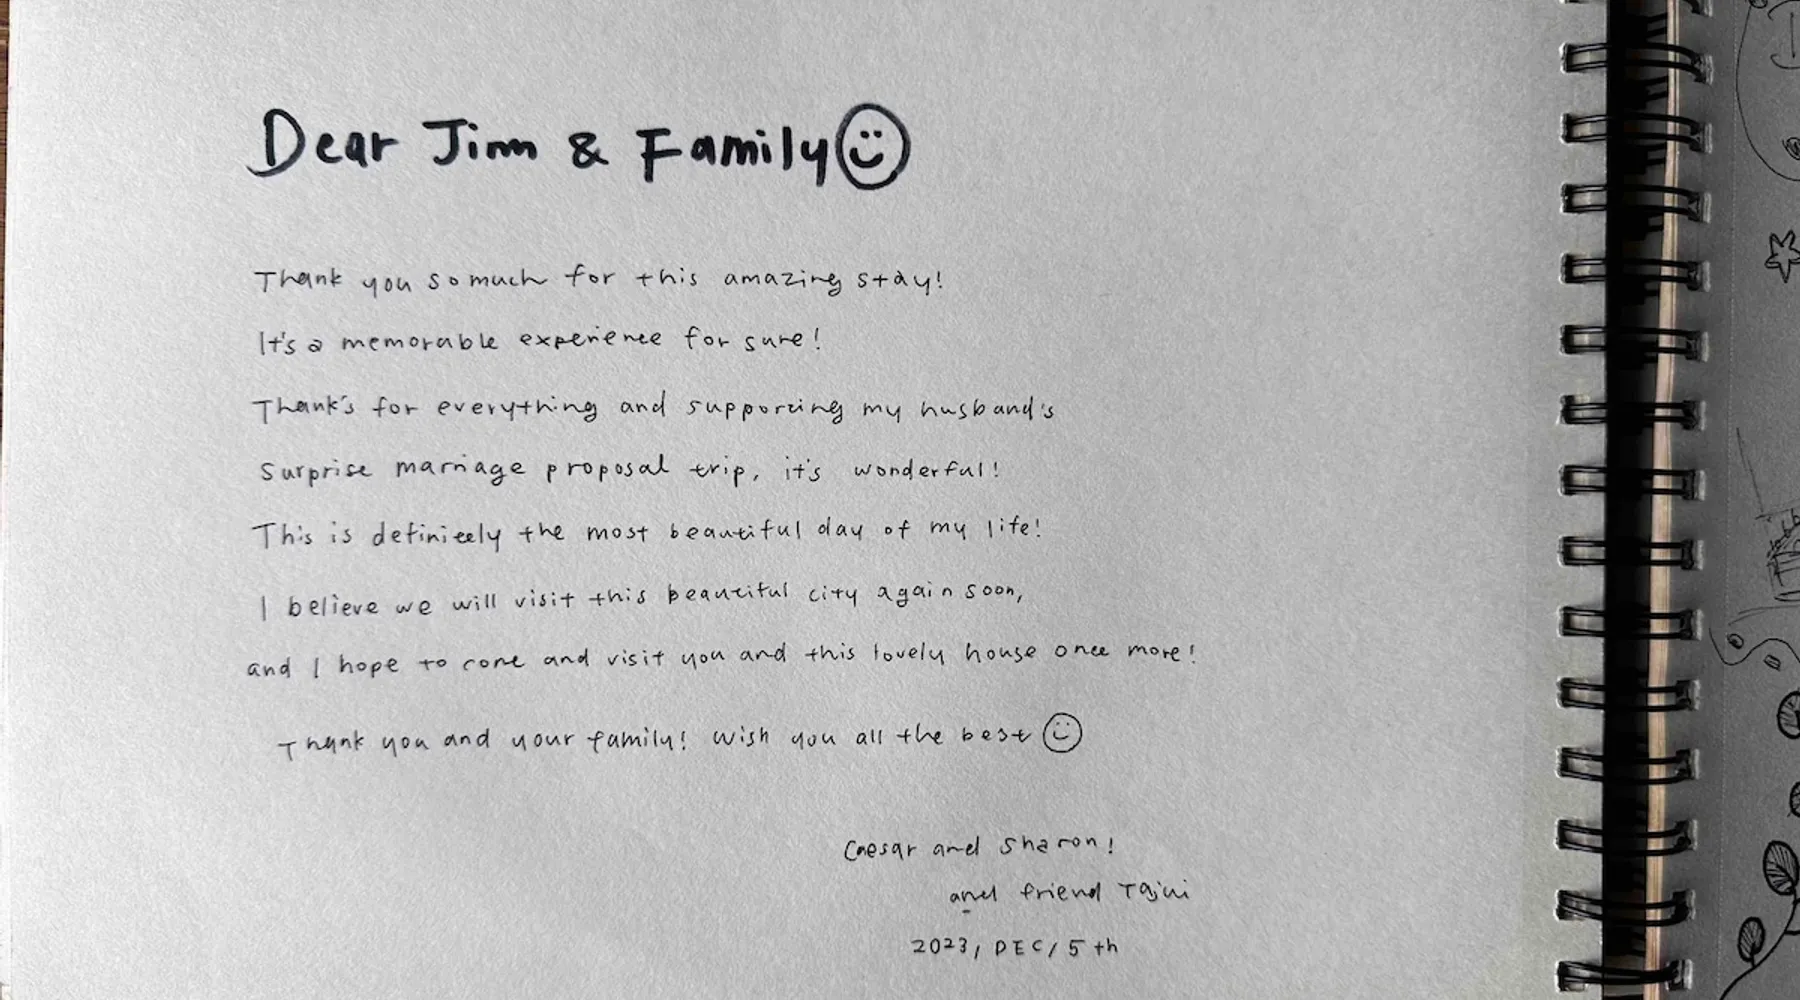 Dear Jim & Family
Thank you so much for this amazing stay!
It's a memorable experience for sure!
Thank's for everything and supporting my husband's
surprise marriage proposal trip, it's wonderful!
This is definitely the most beautiful day of my life!
I believe we will visit this beautiful city again soon,
and I hope to come and visit you and this lovely house once more!
Thank you and your family! Wish you all the best
Caesar and Sharon!
and friend
2023, DEC/5th